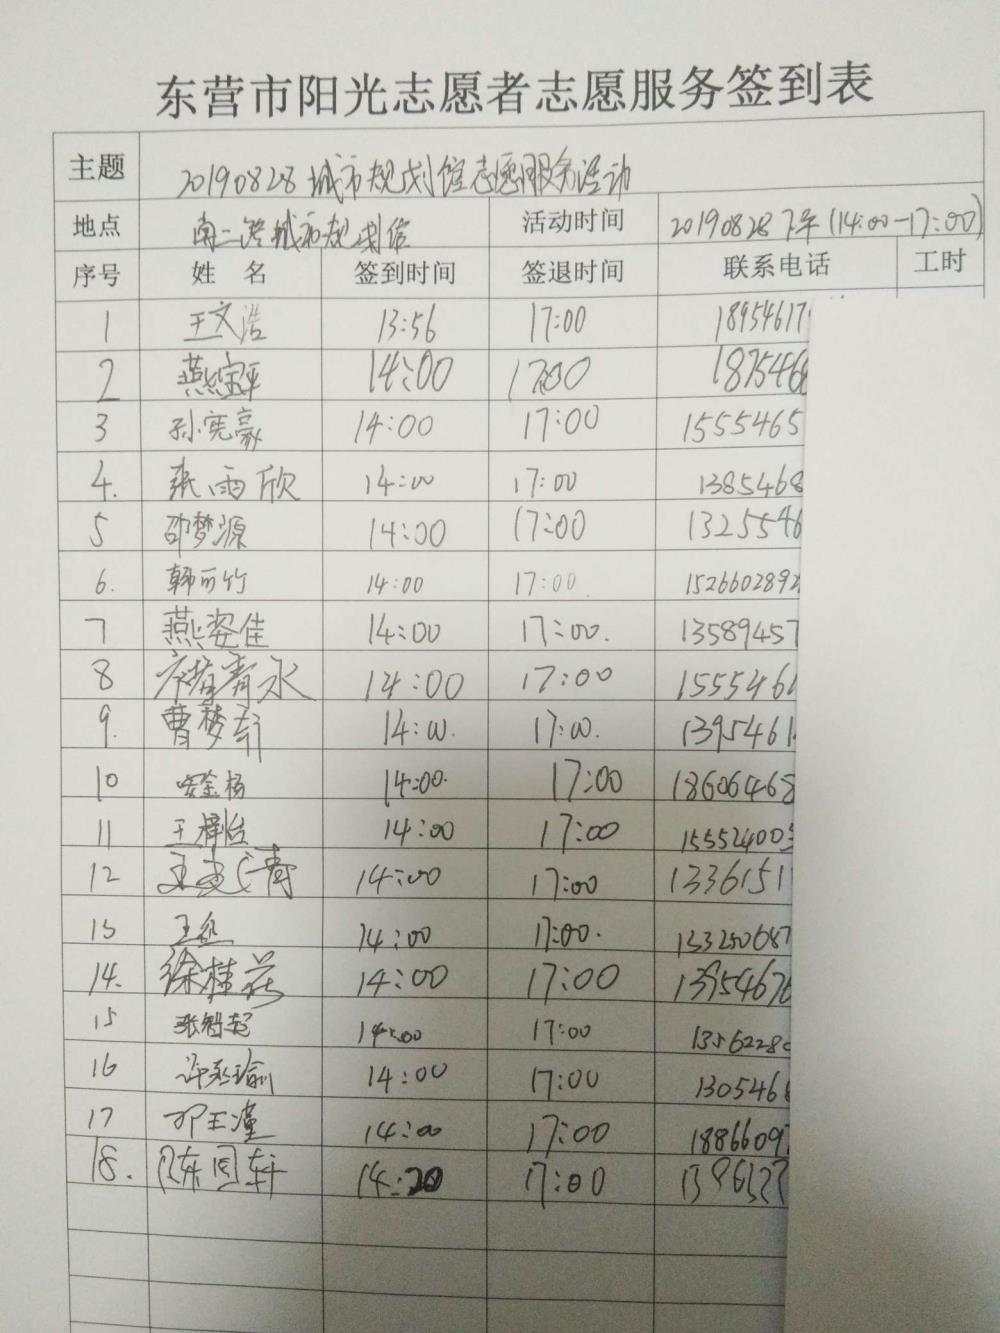 东营市阳光志愿者志愿服务签到表
主题 20190828城市规划馆志愿服务活动
地点 南二路城市规划馆 活动时间 20190828下午(14:00-17:00)
序号 姓名 签到时间 签退时间 联系电话 工时
1 王文浩 13:56 17:00 18954617
2 燕宝平 14:00 17:00 1875468
3 孙宪豪 14:00 17:00 1555465
4. 张雨欣 14:00 17:00 1385468
5 邵梦源 14:00 17:00 1325546
6. 韩可竹 14:00 17:00 1526602892
7 燕姿佳 14:00 17:00. 13589457
8 14:00 17:00 1555461
9. 曹梦轩 14:00. 17:00. 1395461
10 14:00. 17:00 18606468
11 王梓怡 14:00 17:00 155524003
12 14:00 17:00 1336151
13 14:00 17:00. 153250687
14. 徐桂花 14:00 17:00 13954676
15 张智超 14:00 17:00 1356228
16 许承瑜 14:00 17:00 1305468
17 邓玉潼 14:00 17:00 18866097
18. 陈同轩 14:20 17:00 1396327